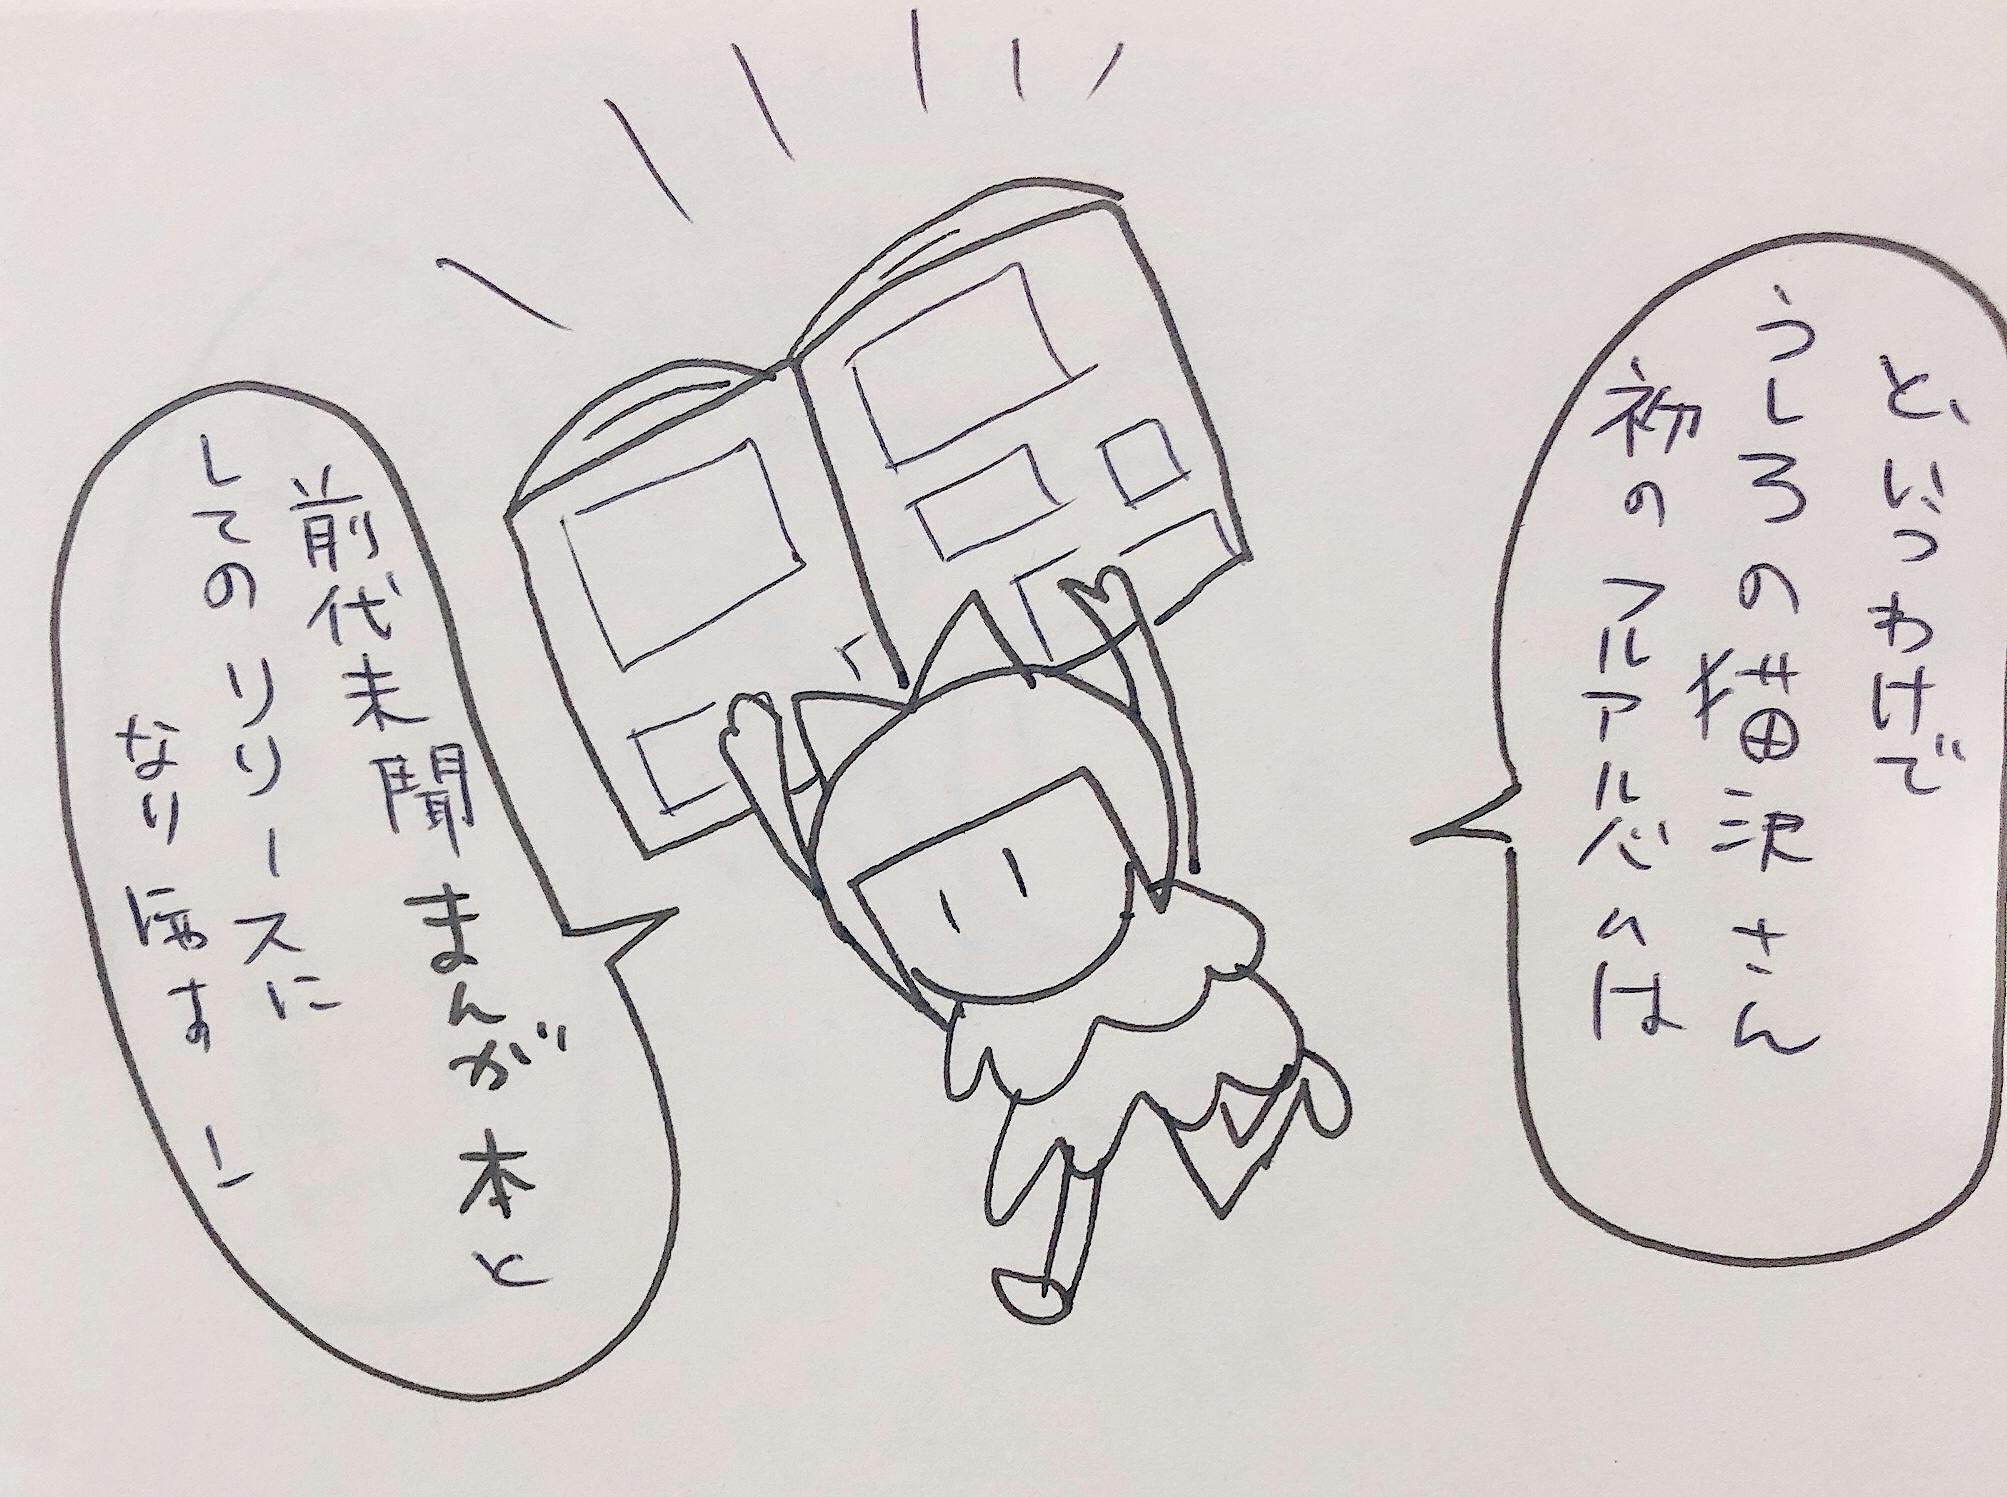 と、いうわけで
うしろの猫沢さん
初のフルアルバムは
前代未聞まんが本と
してのリリースに
なります!